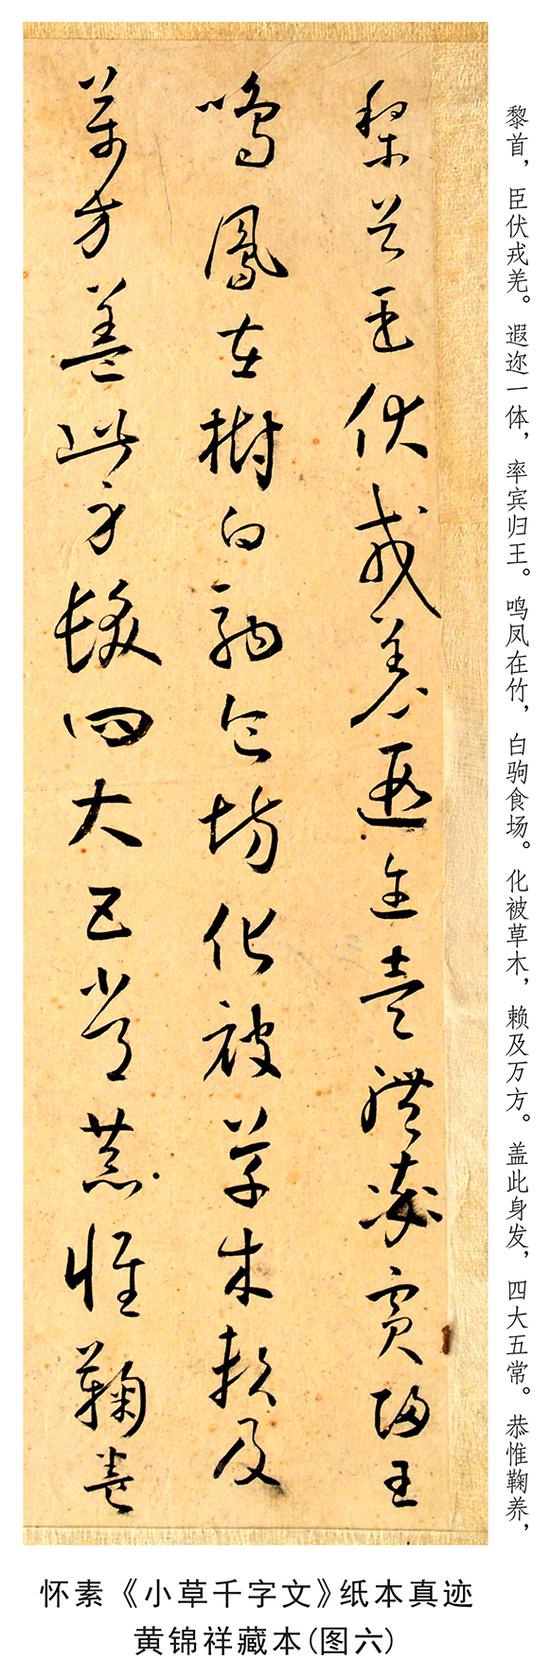 黎首，臣伏戎羌。遐迩一体，率宾归王。鸣凤在竹，白驹食场。化被草木，赖及万方。盖此身发，四大五常。恭惟鞠养，
黎首臣伏戎羌遐迩壹體率賓歸王
鳴鳳在樹白駒食場化被草木賴及
萬方蓋此身髮四大五常恭惟鞠養
怀素《小草千字文》纸本真迹
黄锦祥藏本(图六)